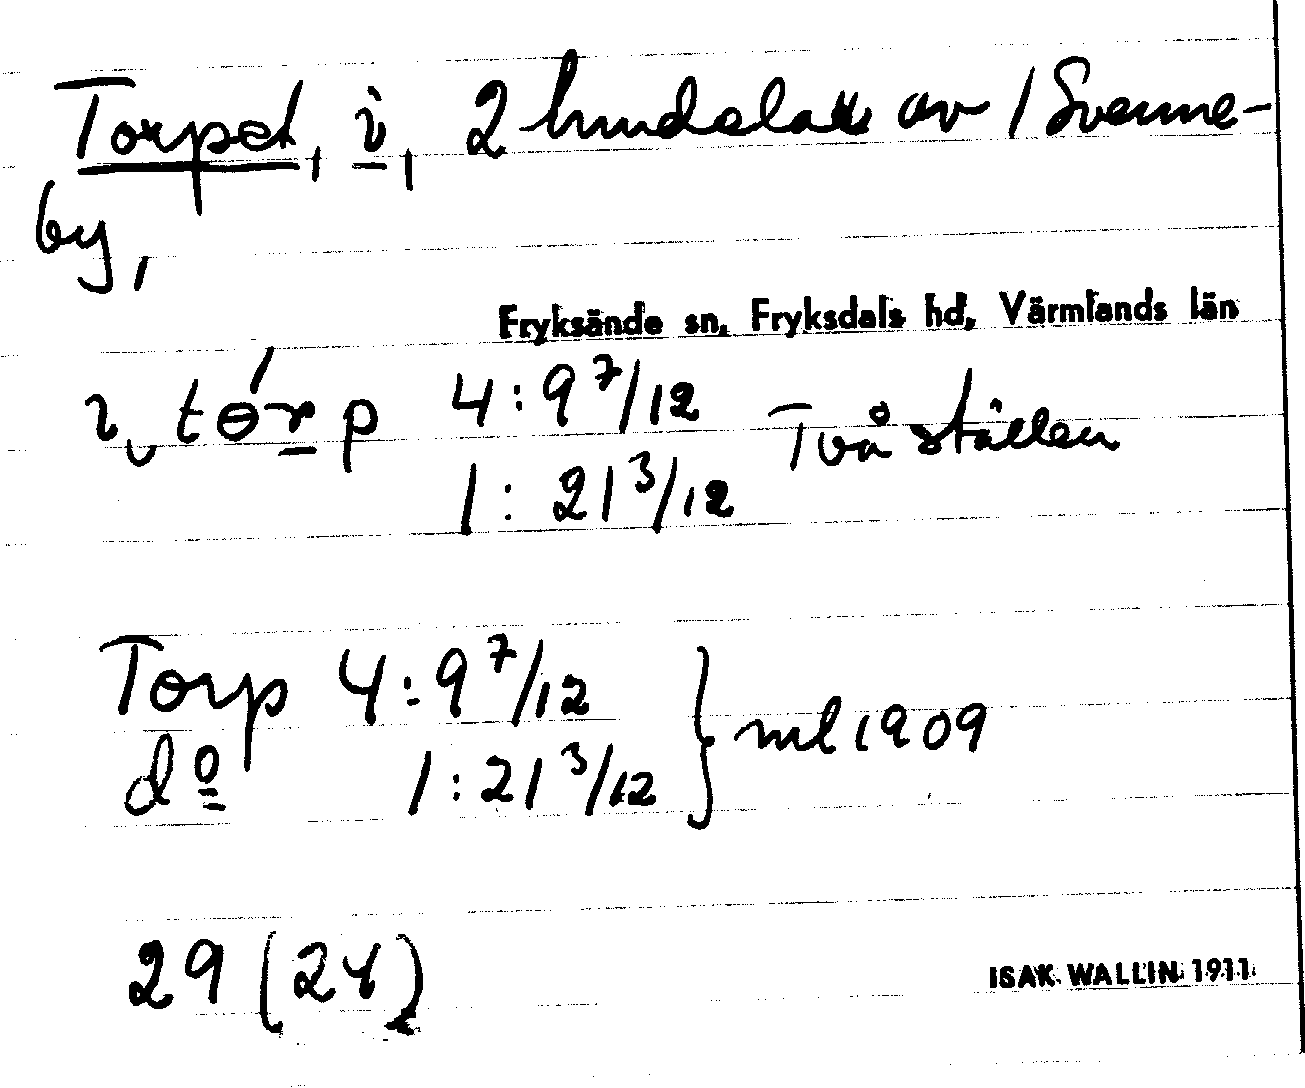 Torpet, i, 2 hundelar av 1 Svenne-
by,
Fryksände sn, Fryksdals hd, Värmlands län
i tórp 4:9 7/12 Två ställen
1:21 3/12
Torp 4:9 7/12
do 1:21 3/12 } ml 1909
29 (24)
ISAK WALLIN 1911